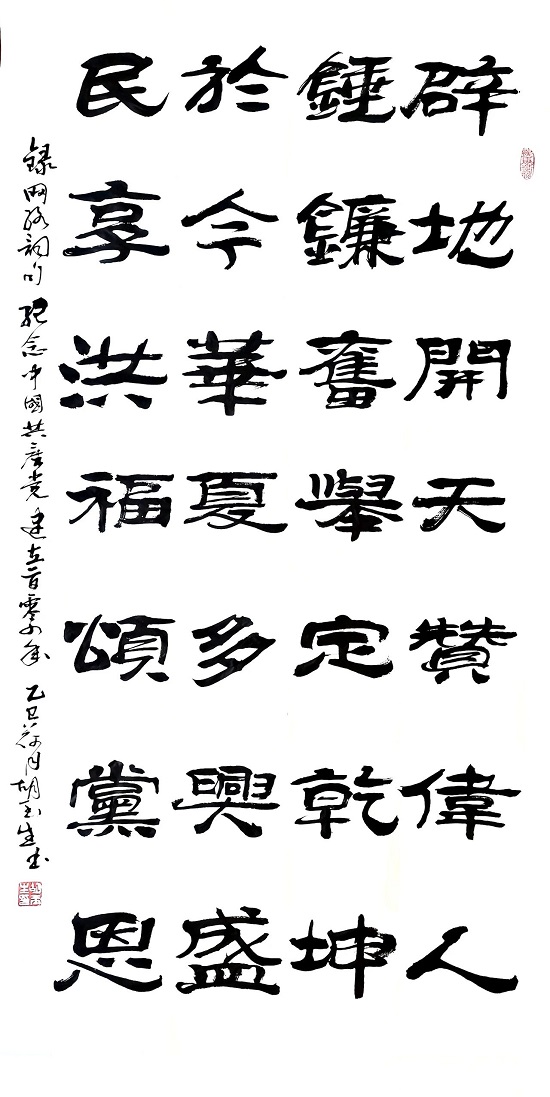 辟地開天贊偉人
錘鐮奮舉定乾坤
於今華夏多興盛
民享洪福頌黨恩
録网络詞句 纪念中國共产党建立一百零四年 乙巳荷月胡玉生书